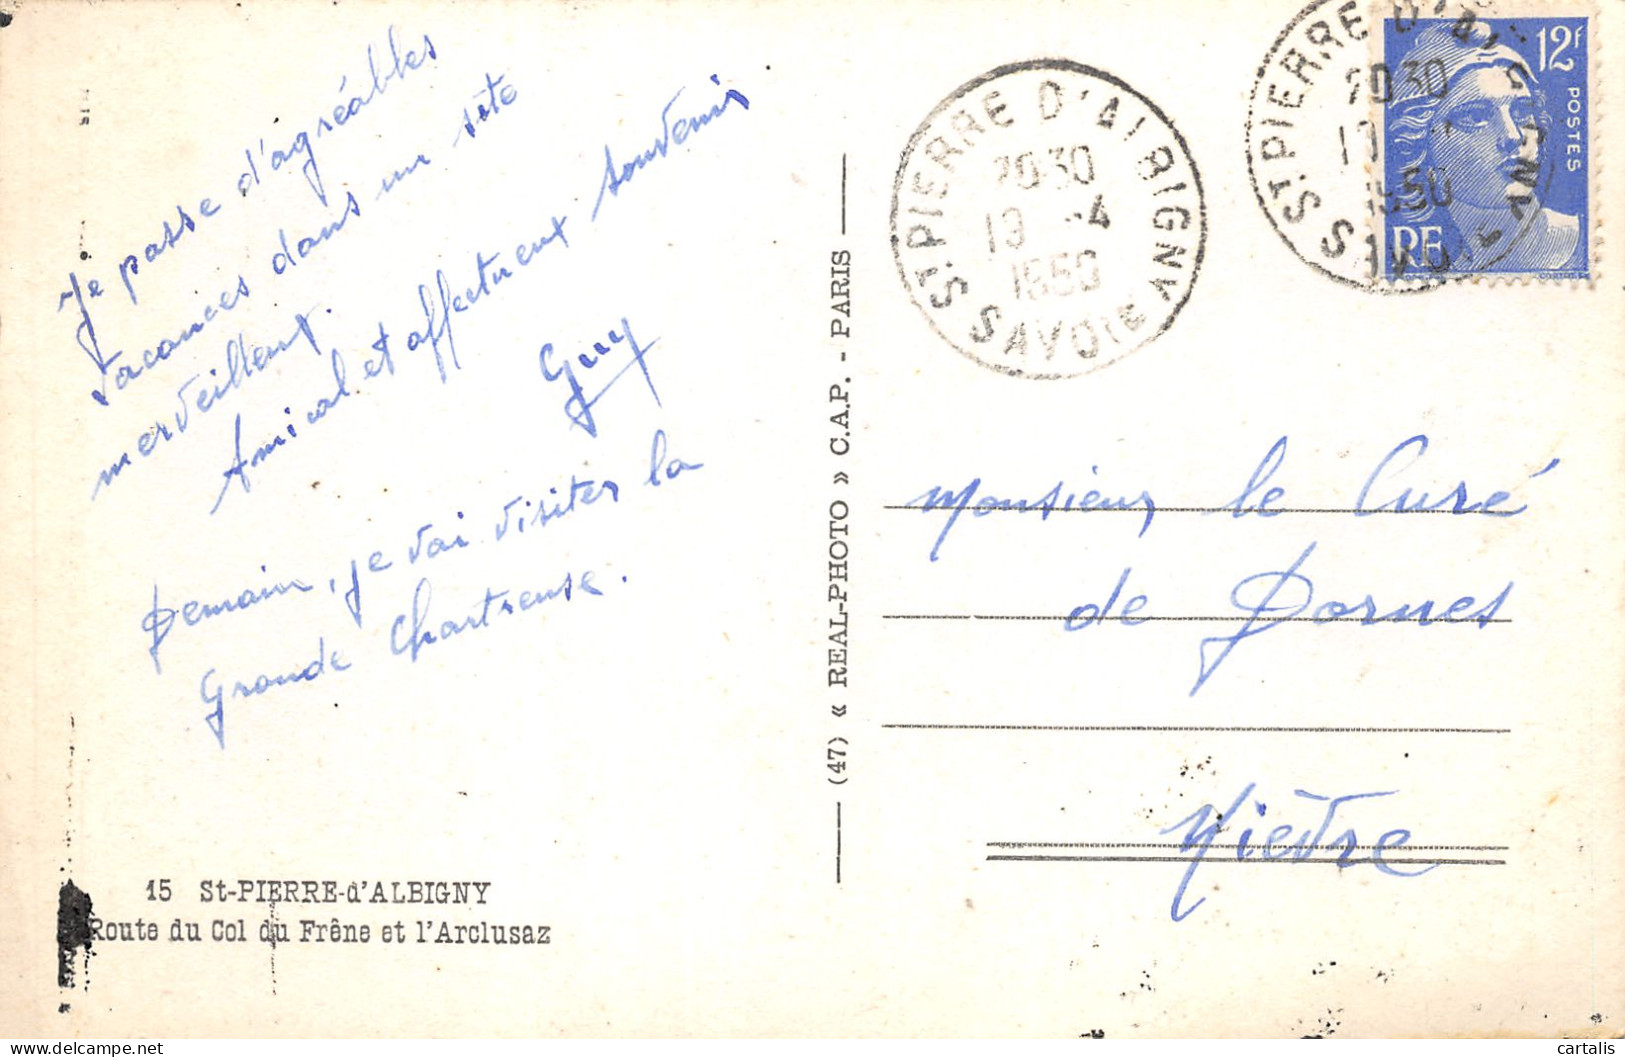 Je passe d'agréables
vacances dans un site
merveilleux.
Amical et affectueux souvenir
Guy
Demain, je vai visiter la
Grande Chartreuse.
15 St-PIERRE-d'ALBIGNY
Route du Col du Frêne et l'Arclusaz
(47) « REAL-PHOTO » C.A.P. - PARIS
ST PIERRE D'ALBIGNY
2030
19 -4
1950
SAVOIE
ST PIERRE D'ALBIGNY
2030
19
1950
SAVOIE
12F
POSTES
RF
Monsieur le Curé
de Dornes
Nièvre
cartalis